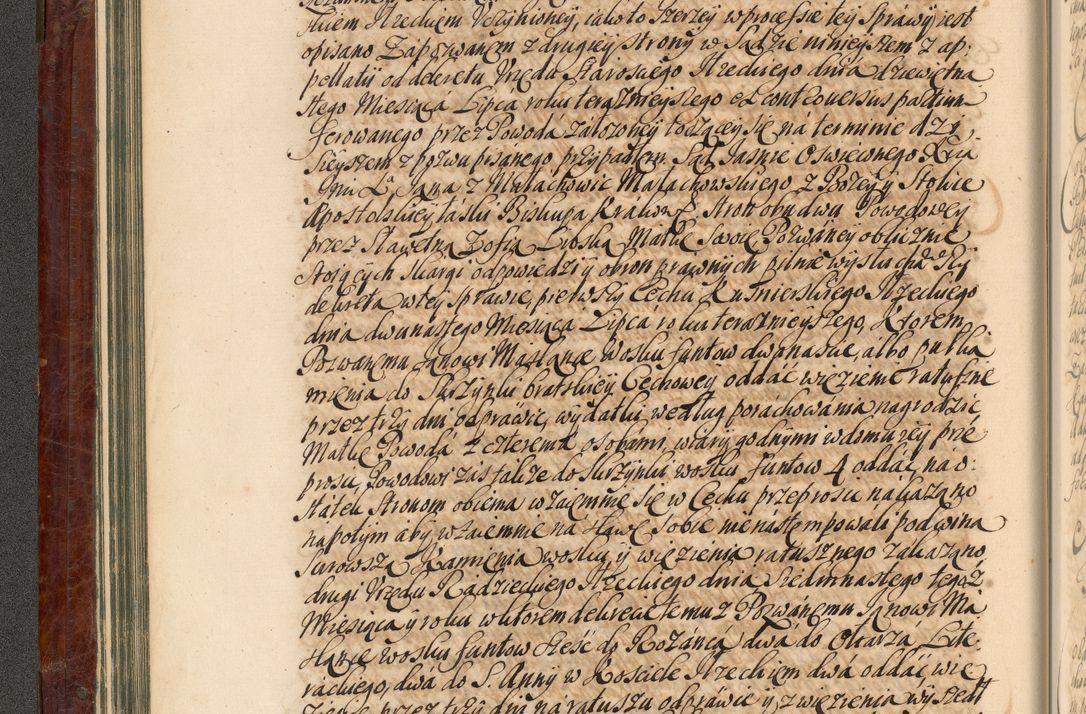 stwem Urzędem Uczynioney, iako to szerzey w processie tey Sprawy iest
opisano Zapozwanem z drugiey strony w Sądzie ninieyszem z ap-
pellatÿ od dekretu Urzędu Starosciego Siedleckiego dnia dziewietna
stego Miesiąca Lipca roku teraznieyszego et controversus partium
ferowanego przez Powoda załozoney toczącey się na terminie dzi
sieyszem z pozwu pisanego przypadłem. Sąd Jasnie Oswieconego Xcia
Jmci Xa Jana z Małachowic Małachowskiego z Bozey y Stolice
Apostolskiey łaski Biskupa Krakows: Stron obudwu Powodowey
przez Sławetną Zofią Matkę swoię Pozwaney oblicznie
Stojących skargi odpowiedzi y obron prawnych pilnie wysłuchawszy
dekreta w tey sprawie, pierwszy Cechu Kusnierskiego
dnia dwunastego Miesiąca Lipca roku teraznieyszego, Ktorem
Pozwanemu Janowi Maslance wosku funtow dwanascie, albo
mienia do Skrzynki brackiey Cechowey oddać więzienie ratuszne
przez trzy dni odprawić, wydatki według porachowania nagrodzić
Matkę Powoda z czterema osobami wiary godnymi w domu iey prze
prosić, Powodowi zas także do skrzynki wosku funtow 4 oddać, na o-
statek Stronom obiema wzaiemnie się w Cechu przeprosić nakazano
napotym aby wzaiemnie na sławę sobie nie następowali pod winą
surowszą Kamienia wosku y więzienia ratusznego zakazano
drugi Urzędu Radzieckiego dnia Siedmnastego tegoż
Miesiąca y roku w ktorem dekrecie temuz Pozwanemu Janowi Ma
slance wosku funtow sześć do Rożańca, dwa do Ołtarza Lite-
rackiego, dwa do S. Anny w Kościele dwa oddać, wię
zienie przez trzy dni na ratuszu odprawić y z więzienia wyszedł